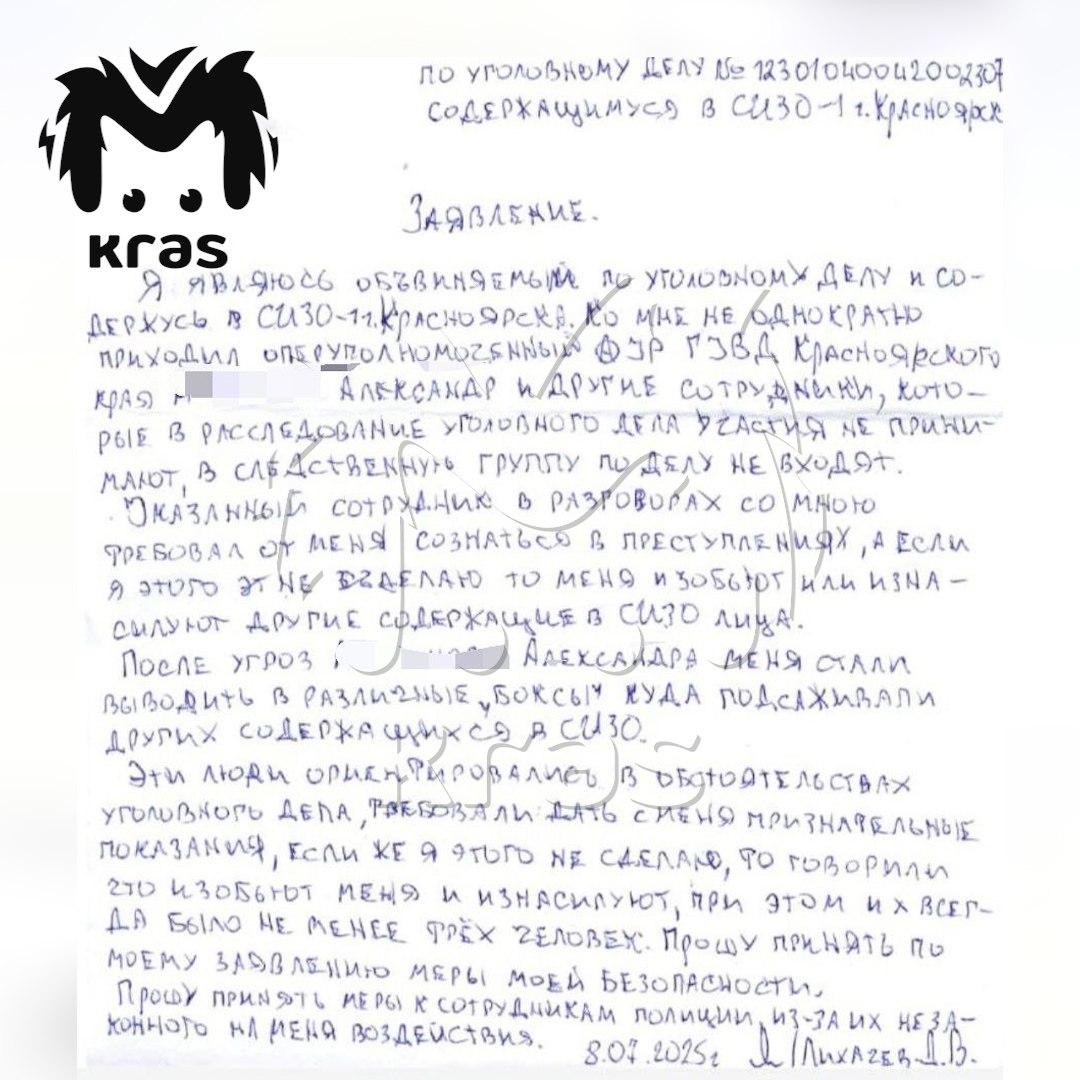 по уголовному делу № 12301040042002307
содержащимуся в СИЗО-1 г. Красноярск
kras
Заявление.
Я являюсь объвиняемый по уголовному делу и со-
держусь в СИЗО-1 г. Красноярска. Ко мне не однократно
приходил оперуполномоченный УР ГУВД Красноярского
края Александр и другие сотрудники, кото-
рые в расследование уголовного дела участия не прини-
мают, в следственную группу по делу не входят.
Указанный сотрудник в разговорах со мною
требовал от меня сознаться в преступлениях, а если
я этого не сделаю то меня изобьют или изна-
силуют другие содержащие в СИЗО лица.
После угроз Александра меня стали
выводить в различные боксы куда подсаживали
других содержащихся в СИЗО.
kras
Эти люди ориентировались в обстоятельствах
уголовного дела, требовали дать с меня признательные
показания, если же я этого не сделаю, то говорили
что изобьют меня и изнасилуют, при этом их всег-
да было не менее трёх человек. Прошу принять по
моему заявлению меры моей безопасности,
Прошу принять меры к сотрудникам полиции, из-за их неза-
конного на меня воздействия.
8.07.2025г Лихачев Д.В.